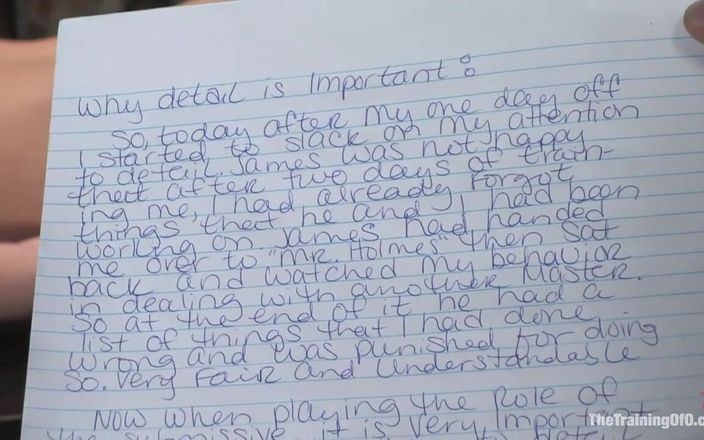 Why detail is Important:
So, today after My one day off
I started to slack on My attention
to detail. James was not happy
that after two days of train-
ing me, I had already Forgot
things that he and I had been
working on. James had handed
me over to "Mr. Holmes" then Sat
back and watched My behavior
in dealing with another Master.
So at the end of it he had a
list of things that I had done
wrong and was punished for doing
So. Very Fair and Understandable
Now when playing the Role of
the submissive it is very Important
TheTrainingOfO.com